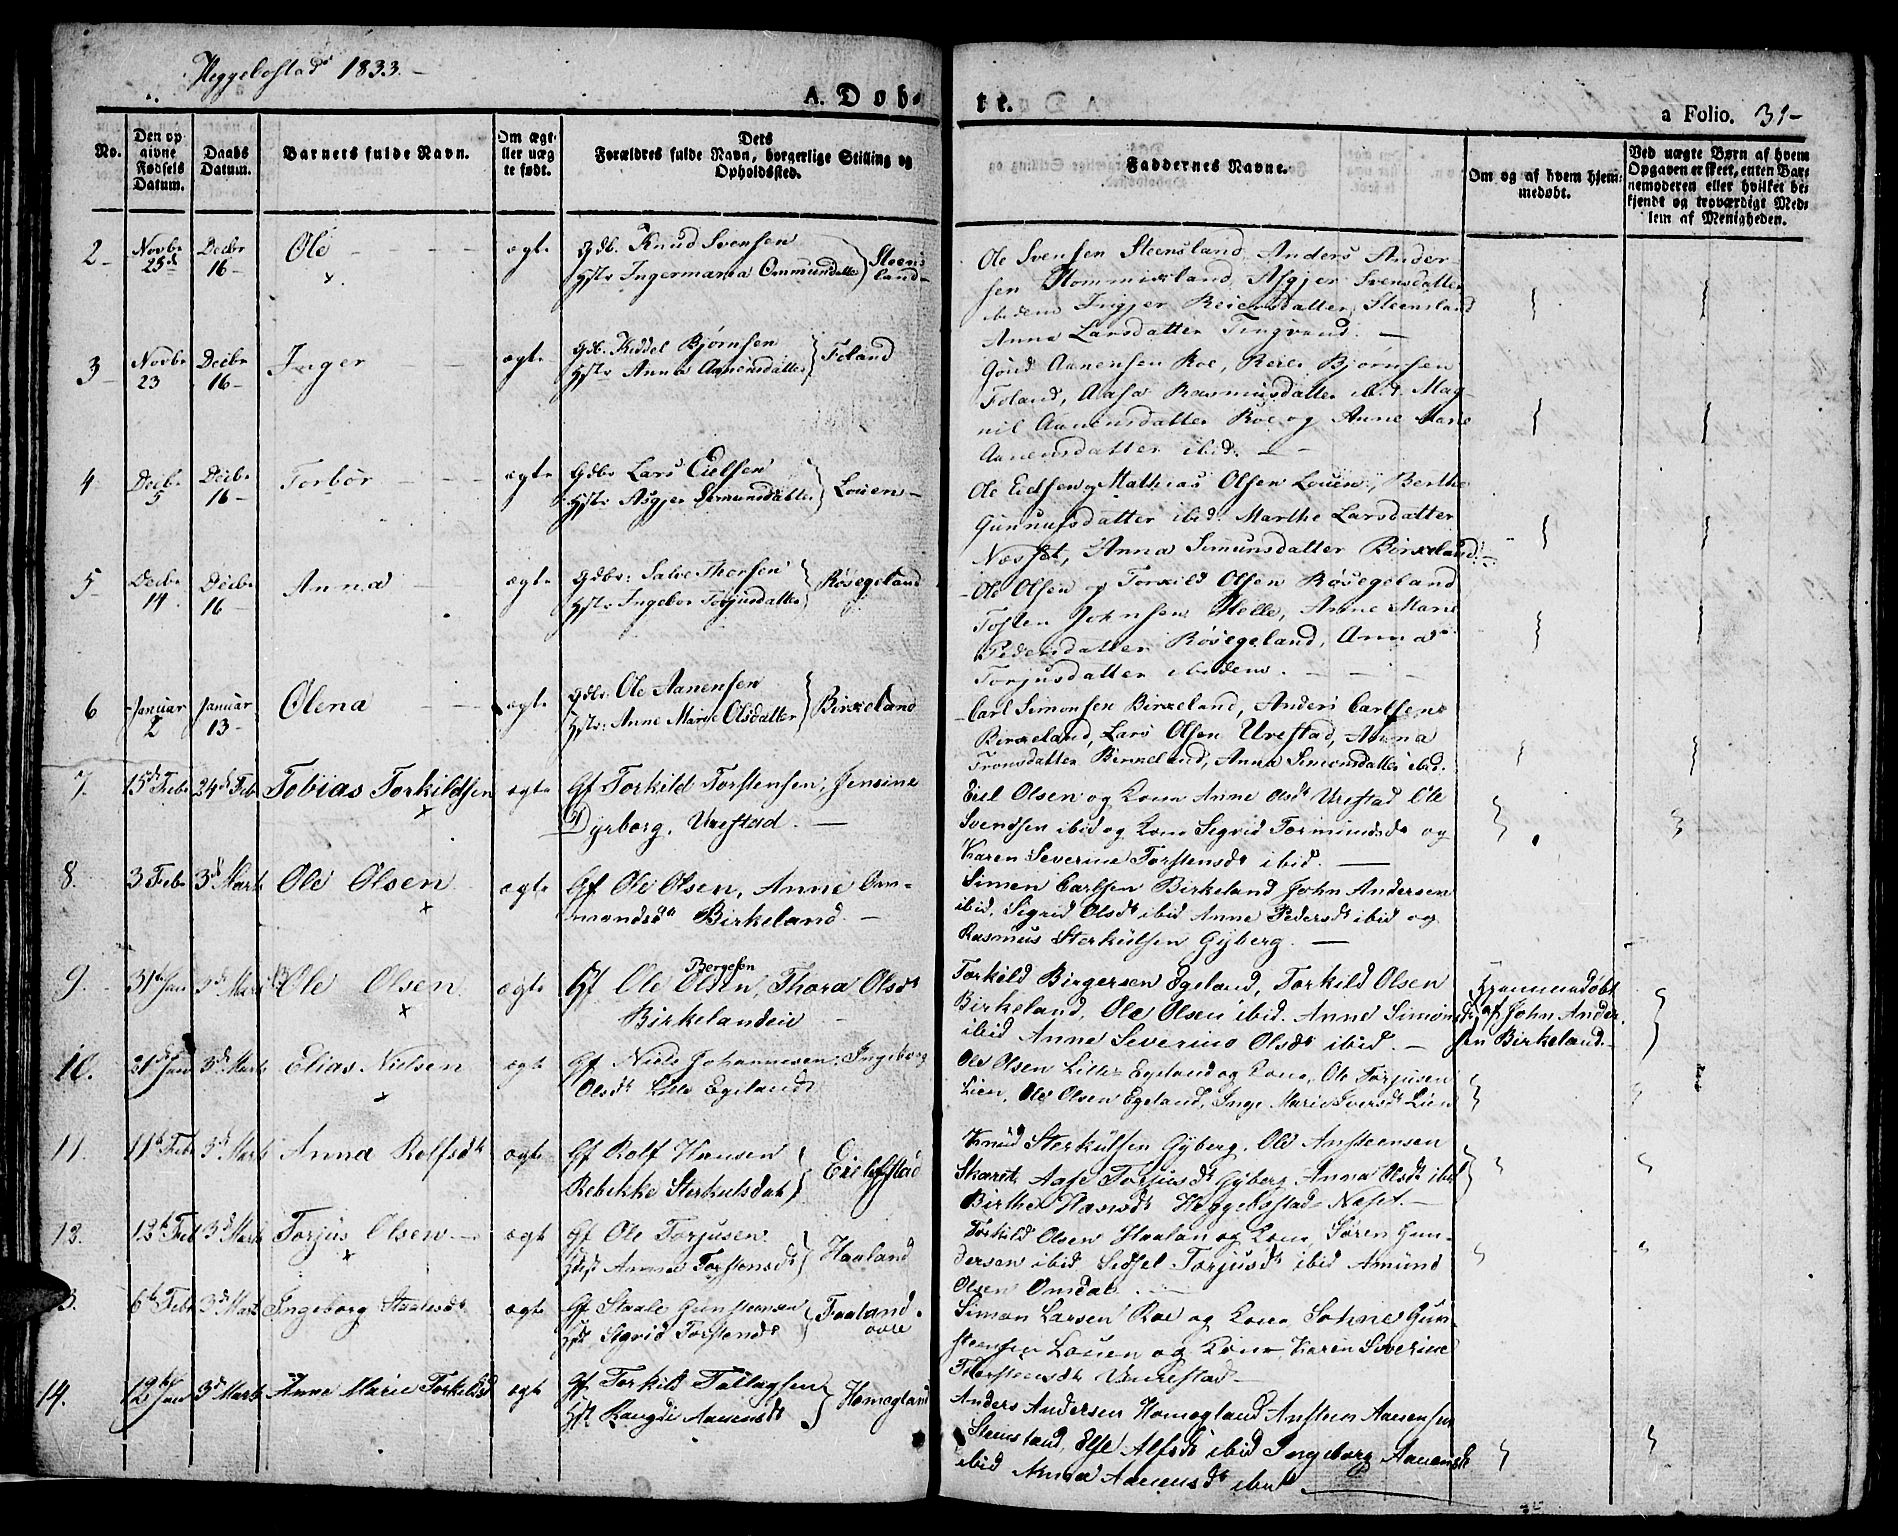 Heggebostad 1833.-
A. Dob-
te.
a Folio. 31-
No.
Den op
givne
Fødsels
Datum.
Daabs
Datum.
Barnets fulde Navn.
Om ægt
eller uæg
te født.
Dets
Forældres fulde Navn, borgerlige Stilling og
Opholdssted.
Faddernes Navne.
Om og af hvem hjem-
medøbt.
Ved uægte Børn af hvem
Opgaven er skeet, enten Bar-
nemoderen eller hvilket be-
kjendt og troværdigt Med-
lem af Menigheden.
2- Novbr 25d Decbr 16- Ole ægte
Gdb. Knud Svensen
Hstr Ingermaria Ommundsdatter } Steens land-
Ole Svensen Steensland Anders Ander-
sen Hommersland, Asgjer Svensdatter
ibidem Ingjer Reiersdatter, Steensland
Anna Larsdatter Tingvand. -
3- Novbr 23 Decbr 16- Inger ægte
Gdb. Kiddel Bjørnsen
Hstr Anna Aanensdatter } Foland
Gond Aanensen Roe, Reier Bjørnsen
Foland, Aasa Rasmusdatter ibid. Mag-
nil Aanensdatter Roe og Anne Marie
Aanensdatter ibid. -
4 Decbr 5 Decbr 16- Torbor ægte
Gdbr Lars Eielsen
Hstr Asgjer Simunsdatter } Louen-
Ole Eielsen og Mathias Olsen Louen, Berthe
Gunnufsdatter ibid. Marthe Larsdatter
Nesset, Anna Simunsdatter Birkeland.
5 Decbr 14 Decbr 16- Anna ægte
Gdbr: Salve Thorsen
Hstr Ingebor Torjusdatter } Røsegeland
Ole Olsen og Torkild Olsen Røsegeland
Tosten Johnsen Helle, Anne Marie
Pedersdatter Røsegeland, Anna
Torjusdatter ibidem. -
6 Januar 2 Januar 13- Olena ægte
Gdbr: Ole Aanensen
Hstr: Anne Marie Olsdatter } Birkeland
Carl Simonsen Birkeland, Anders Carlsen
Birkeland, Lars Olsen Urestad, Anna
Tronsdatter Birkeland, Anna Simonsdatter ibid.
7. 15d Febr 24d Feb Tobias Torkildsen ægte
Gf Torkild Torstensen, Jensine
Dyrborg, Urestad. -
Eiel Olsen og Kone Anne Olsdt Urestad Ole
Svendsen ibid og Kone Segrid Tormundsdt og
Karen Severine Torstensdt ibid. -
8. 3 Febr 3d Marts Ole Olsen ægte
Gf Ole Olsen, Anne Om-
mondsdt Birkeland. -
Simen Carlsen Birkeland John Andersen
ibid, Segrid Olsdt ibid Anne Pedersdt ibid og
Rasmus Sterkulsen Gyberg. -
9. 31te Jan 3d Marts Ole Olsen ægte
Gf Ole Bergesen Olsen, Thora Olsdt
Birkelandeie -
Torkild Birgersen Egeland, Torkild Olsen
Birkeland, Ole Olsen ibid. Anne Simonsdt
ibid Anne Severine Olsdt ibid. -
Hjemmedøbt
af John Ander
sen Birkeland.-
10. 21d Jan 3d Marts Elias Nielsen ægte
Gf Niels Johannesen, Ingeborg
Olsdt Lille Egeland
Ole Olsen Lille Egeland og Kone, Ole Torjusen
Lien, Ole Olsen Egeland, Inge Marie Iversdt Lien
11. 11te Febr 3d Marts Anna Rolfsdt ægte
Gf Rolf Hansen
Rebekke Sterkulsdat } Eielefstad
Knud Sterkulsen Gyberg, Ole Ansteensen
Skaret, Aase Torjusdt Gyberg Anna Olsdt ibid
Birthe Hansdt Heggebostad Neset. -
12. 12te Feb 3d Marts Torjus Olsen ægte
Gf Ole Torjusen
Hst Anna Torstensdt } Haaland
Torkild Olsen Haalan og Kone, Søren Gun-
dersen ibid Sidsel Torjusdt ibid Amund
Olsen Omdal. -
13. 6te Febr 3d Marts Ingeborg Staalesdt ægte
Gf Staale Gunsteensen
Hst Sigrid Torstensdt } Faaland
øvre
Simon Larsen Roe og Kone, Sohne Gun-
steensen Louen og Kone, Karen Severine
Thorstensdt Urestad-
14. 12te Jan 3d Marts Anne Marie Torkildsd ægte
Gf Torkild Tallagsen
Hst Rangdi Aanensdt } Homogland
Anders Andersen Homogland Ansteen Aanensen
Steensland, Else Alfsdt ibid Ingeborg Aanensdt
ibid Anna Aanensdt ibid